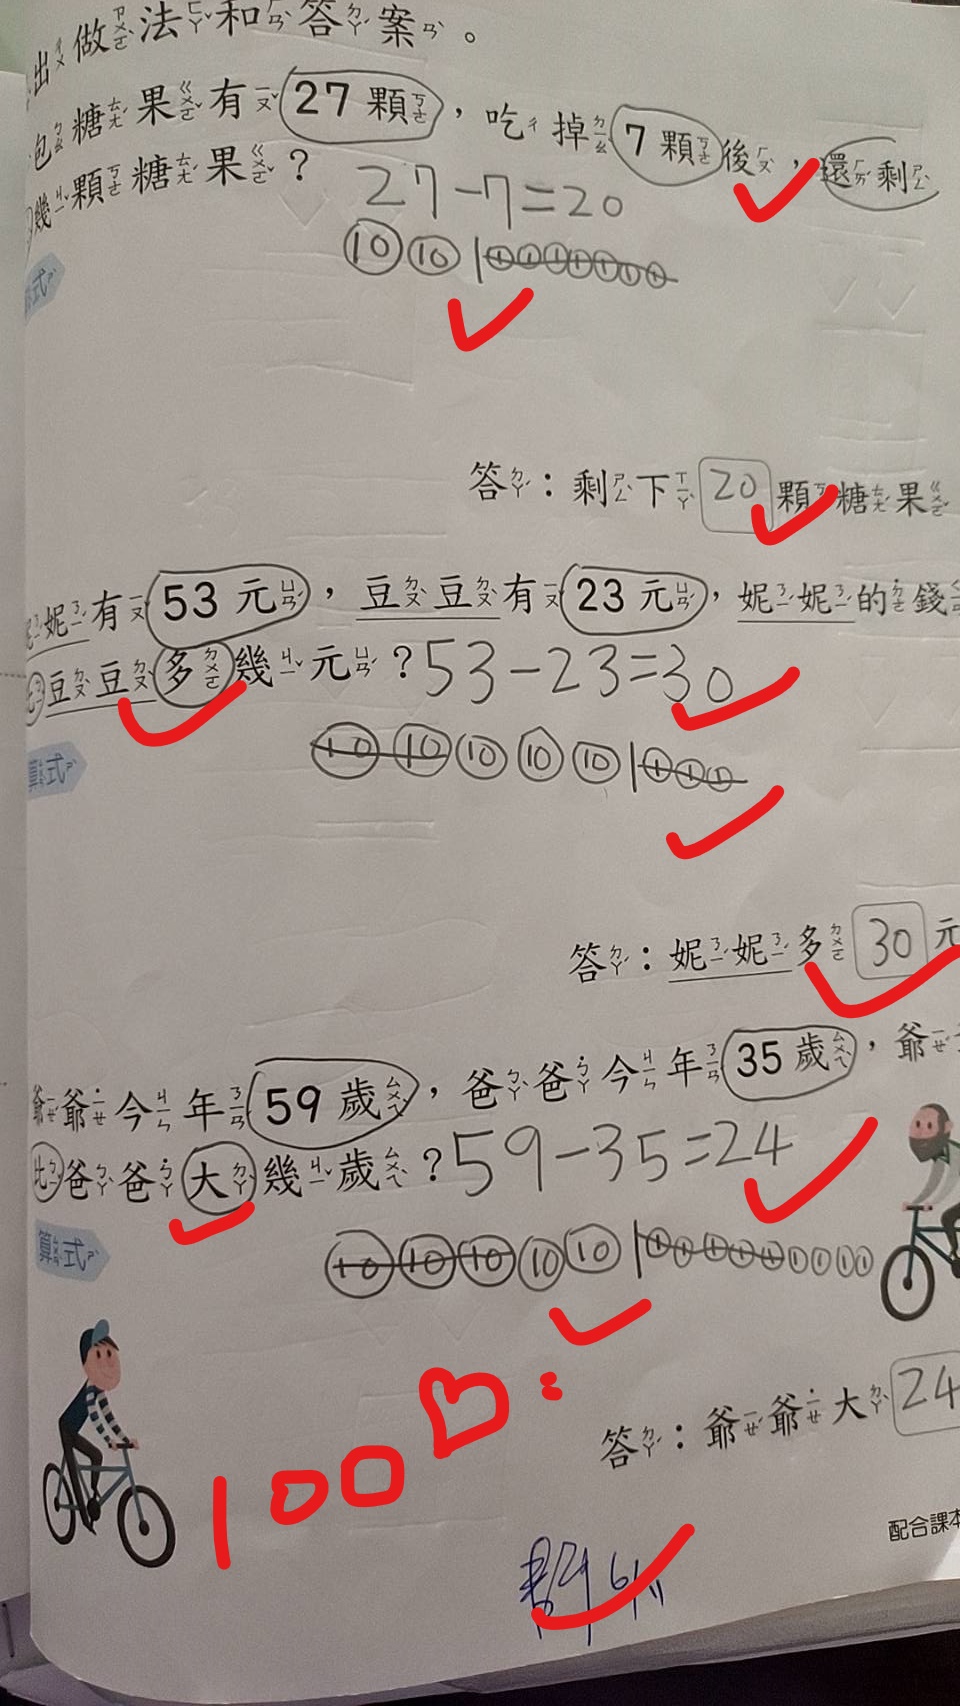 出做法和答案。
包糖果有27顆，吃掉7顆後，還剩
幾顆糖果？
27-7=20
10 10 | 1 1 1 1 1 1 1
式
答：剩下20顆糖果
妮妮有53元，豆豆有23元，妮妮的錢
比豆豆多幾元？53-23=30
算式
10 10 10 10 10 | 1 1 1
答：妮妮多30元
爺爺今年59歲，爸爸今年35歲，爺
比爸爸大幾歲？59-35=24
算式
10 10 10 10 10 | 1 1 1 1 1 1 1 1 1
答：爺爺大24
100
配合課本
6/11